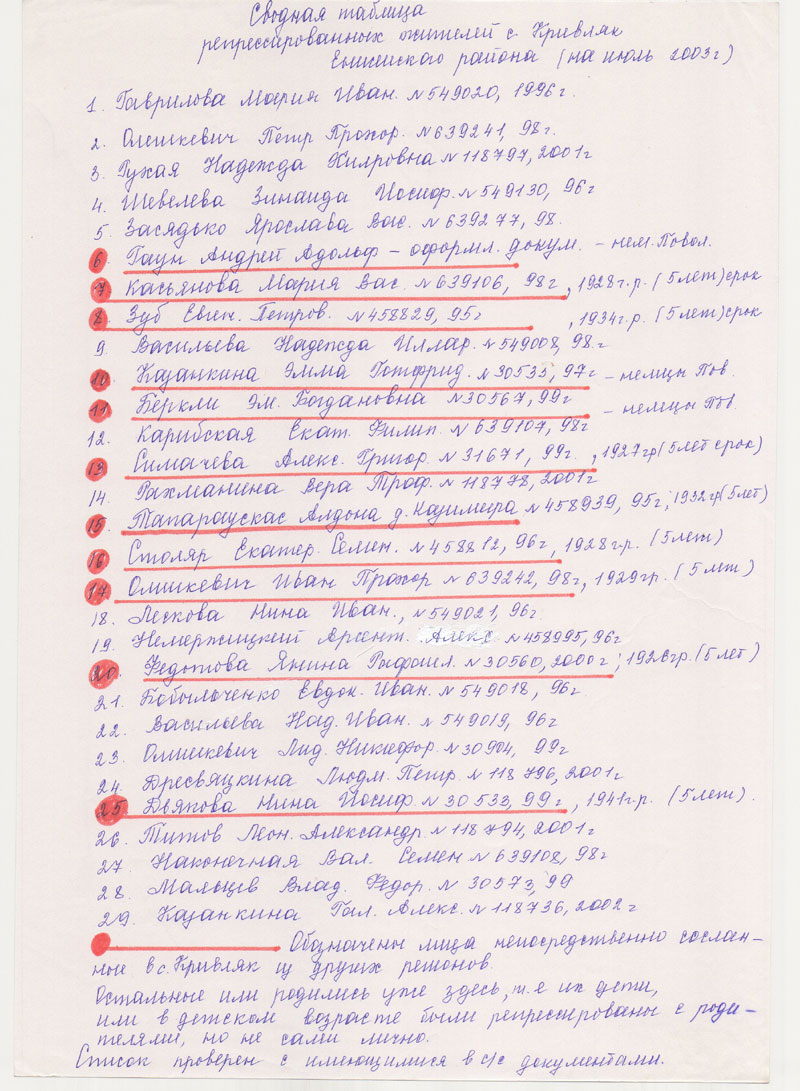 Сводная таблица
репрессированных жителей с. Кривляк
Енисейского района (на июль 2003г)
1. Гаврилова Мария Иван. №549020, 1996г.
2. Олешкевич Петр Прохор. №639241, 98г.
3. Гухая Надежда Хилровна №118797, 2001г
4. Шевелева Зинаида Иосиф. №549130, 96г
5. Засядько Ярослава Вас. №639277, 98.
6. Гаун Андрей Адольф – оформл. докум. – нем. Повол.
7. Касьянова Мария Вас. №639106, 98г, 1928г.р. (5лет) срок
8. Зуб Евген. Петров. №458829, 95г, 1934г.р. (5лет) срок
9. Васильева Надежда Иллар. №549008, 98г.
10. Казанкина Эмма Готфрид. №30535, 97г – немцы Пов.
11. Беркли Эм. Богдановна №30567, 99г – немцы Пов.
12. Карибская Екат. Филип. №639107, 98г
13. Симачева Алекс. Григор. №31671, 99г., 1927гр (5лет срок)
14. Рахманина Вера Троф. №118778, 2001г
15. Тапараускас Алдона д. Казимера №458939, 95г, 1932гр (5лет)
16. Столяр Екатер. Семен. №458812, 96г, 1928г.р. (5лет)
17. Олишкевич Иван Прохор №639242, 98г, 1929гр. (5лет)
18. Лескова Нина Иван., №549021, 96г.
19. Немержицкий Арсент. Алекс №458995, 96г
20. Федотова Янина №30560, 2000г, 1926гр. (5лет)
21. Бобылоченко Евдок. Иван. №549018, 96г.
22. Васильева Над. Иван. №549019, 96г
23. Олишкевич Лид. Никифор. №30904, 99г
24. Дресвяцкина Людм. Петр. №118796, 2001г
25. Дьякова Нина Иосиф. №30533, 99г, 1941г.р. (5лет).
26. Титов Леон. Александр. №118794, 2001г
27 Наконечная Вал. Семен №639108, 98г
28. Мальцев Влад. Федор. № 30573, 99
29. Казанкина Гал. Алекс. №118736, 2002г
Обозначены лица непосредственно сослан-
ные в с. Кривляк из других регионов.
Остальные или родились уже здесь, т.е их дети,
или в детском возрасте были репрессированы с роди-
телями, но не сами лично.
Список проверен с имеющимися в с/с документами.